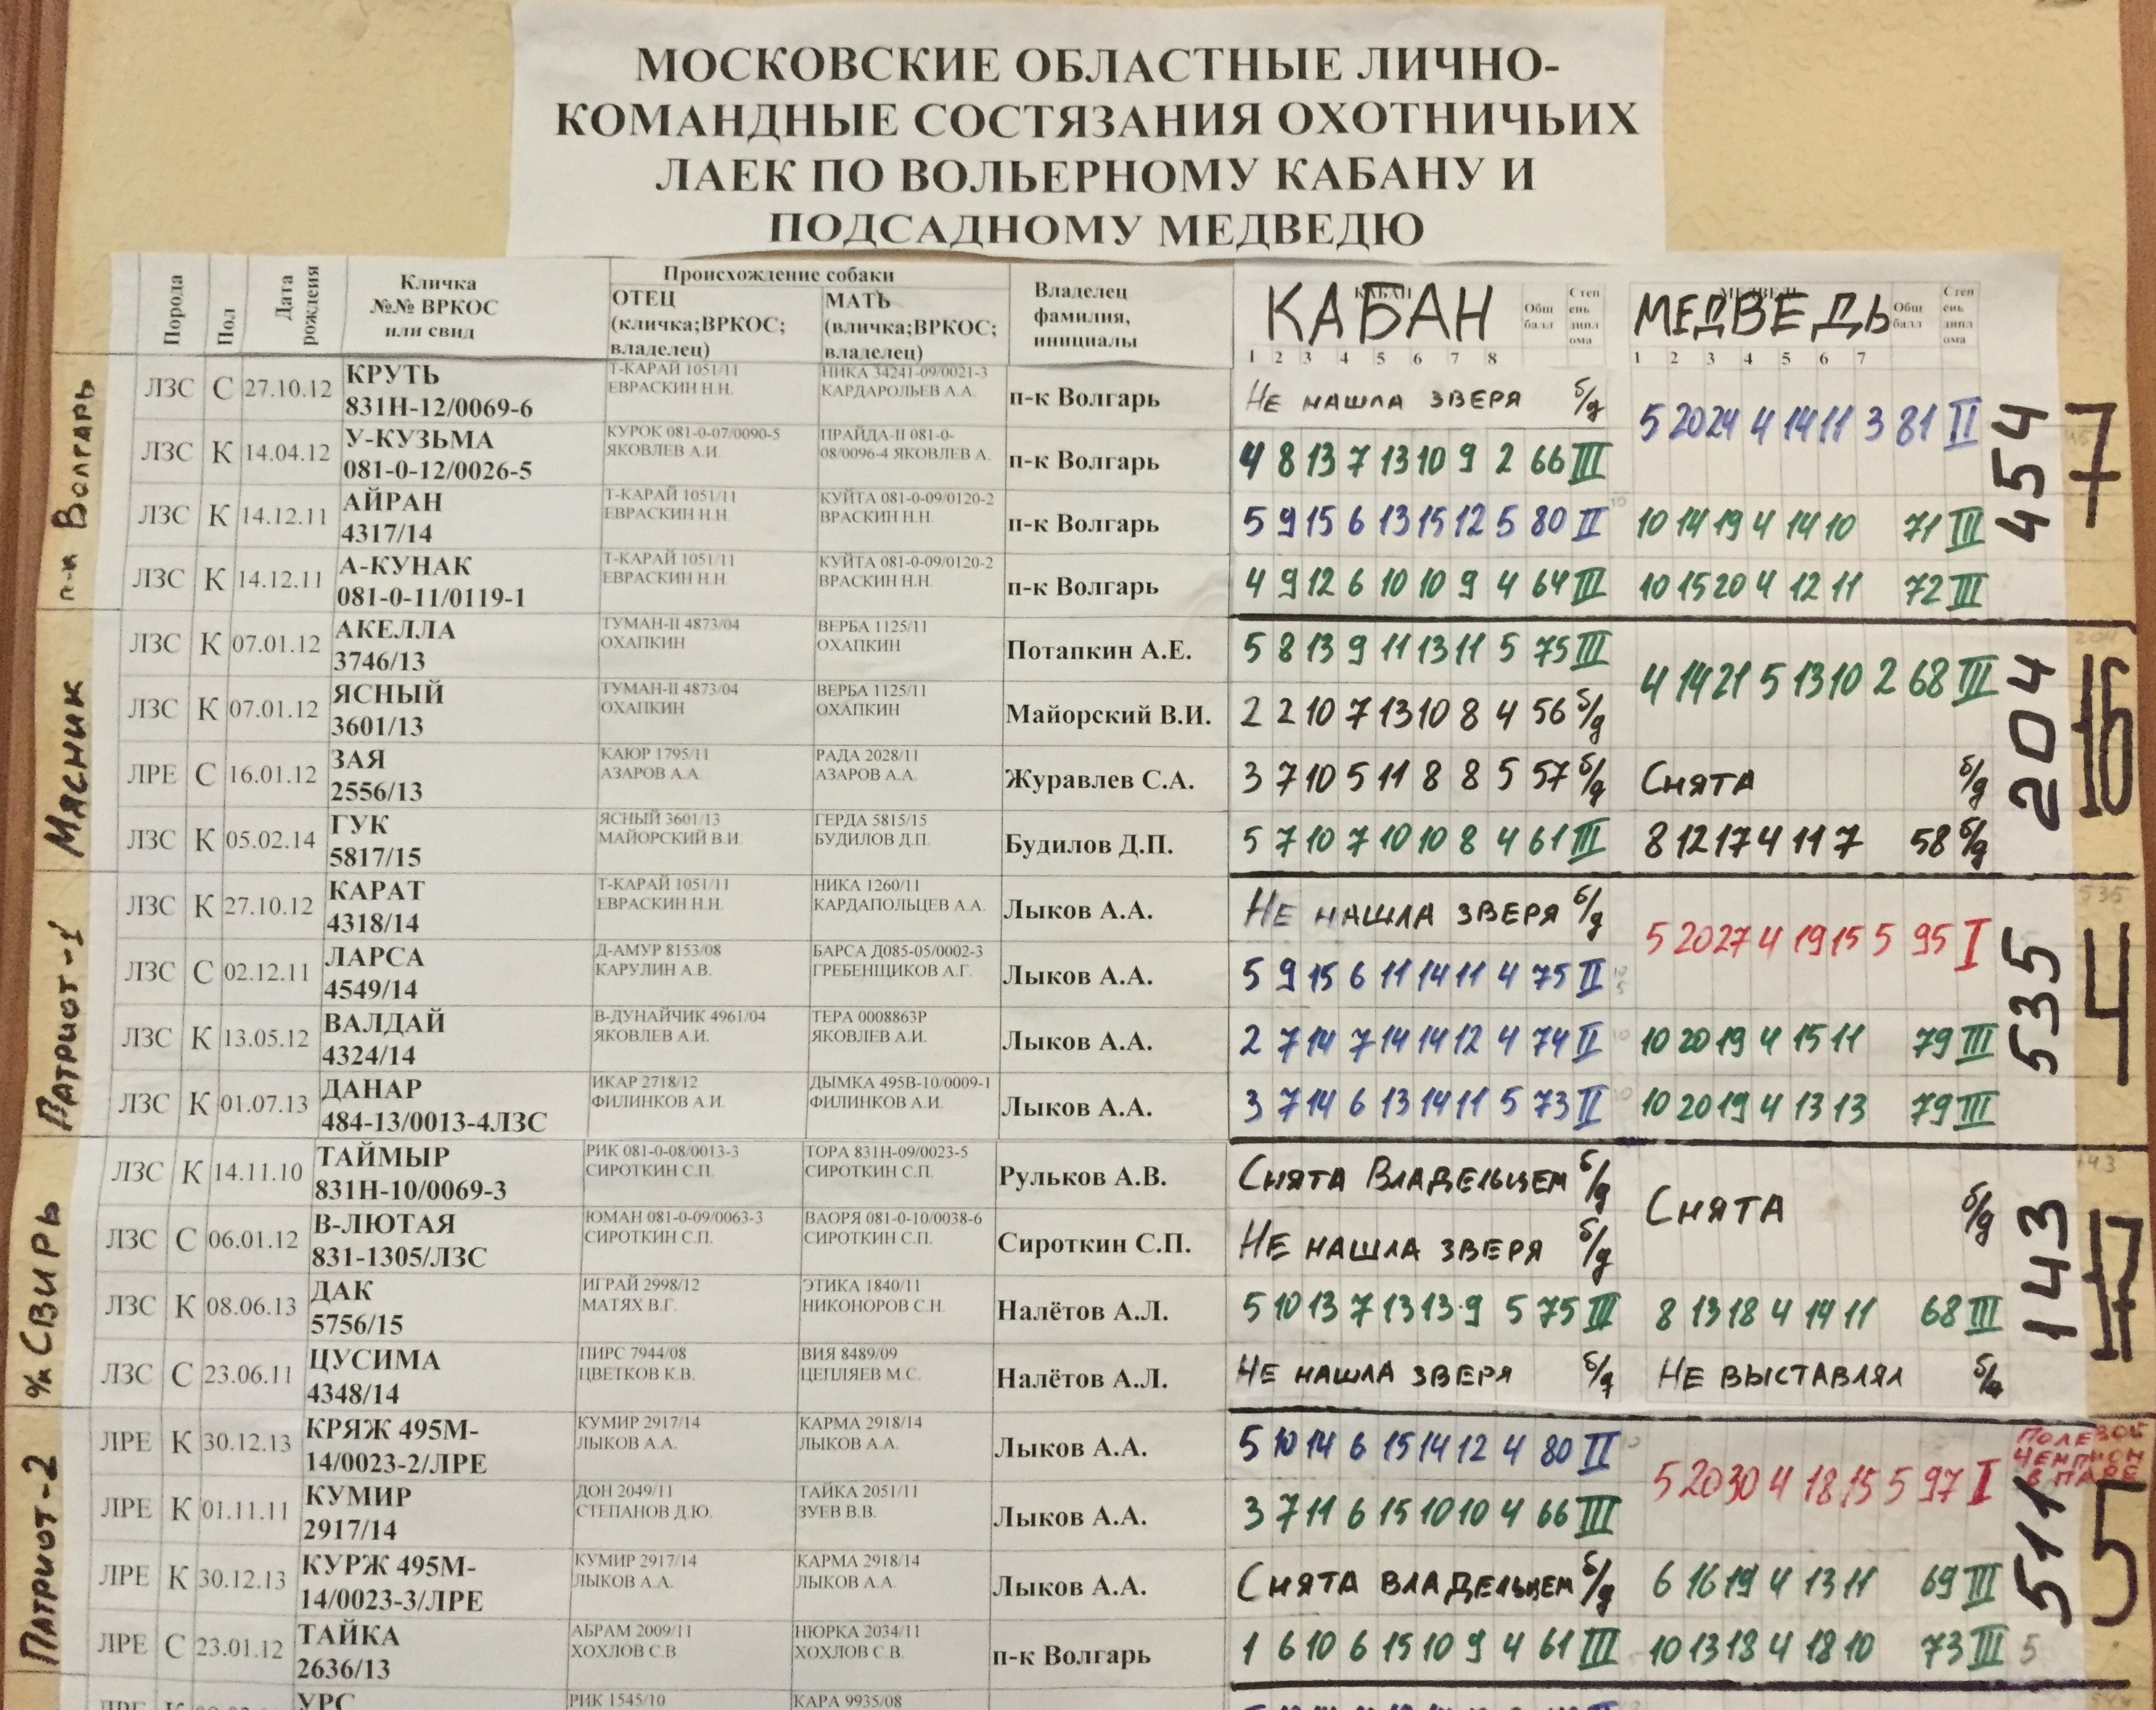 МОСКОВСКИЕ ОБЛАСТНЫЕ ЛИЧНО-
КОМАНДНЫЕ СОСТЯЗАНИЯ ОХОТНИЧЬИХ
ЛАЕК ПО ВОЛЬЕРНОМУ КАБАНУ И
ПОДСАДНОМУ МЕДВЕДЮ
Порода Пол Дата рождения Кличка №№ ВРКОС или свид Происхождение собаки Владелец фамилия, инициалы КАБАН Общ балл Степ ень дипл ома МЕДВЕДЬ Общ балл Степ ень дипл ома
ОТЕЦ (кличка;ВРКОС; владелец) МАТЬ (вличка;ВРКОС; владелец)
1 2 3 4 5 6 7 8 1 2 3 4 5 6 7
п-к Волгарь
ЛЗС С 27.10.12 КРУТЬ Т-КАРАЙ 1051/11 НИКА 34241-09/0021-3 п-к Волгарь Не нашла зверя б/д 5 20 24 4 14 11 3 81 II
831Н-12/0069-6 ЕВРАСКИН Н.Н. КАРДАРОЛЬЕВ А.А.
ЛЗС К 14.04.12 У-КУЗЬМА КУРОК 081-0-07/0090-5 ПРАЙДА-II 081-0- п-к Волгарь 4 8 13 7 13 10 9 2 66 III
081-0-12/0026-5 ЯКОВЛЕВ А.И. 08/0096-4 ЯКОВЛЕВ А.
ЛЗС К 14.12.11 АЙРАН Т-КАРАЙ 1051/11 КУЙТА 081-0-09/0120-2 п-к Волгарь 5 9 15 6 13 15 12 5 80 II 10 14 19 4 14 10 71 III
4317/14 ЕВРАСКИН Н.Н. ВРАСКИН Н.Н.
ЛЗС К 14.12.11 А-КУНАК Т-КАРАЙ 1051/11 КУЙТА 081-0-09/0120-2 п-к Волгарь 4 9 12 6 10 10 9 4 64 III 10 15 20 4 12 11 72 III
081-0-11/0119-1 ЕВРАСКИН Н.Н. ВРАСКИН Н.Н.
454 7
Мясник
ЛЗС К 07.01.12 АКЕЛЛА ТУМАН-II 4873/04 ВЕРБА 1125/11 Потапкин А.Е. 5 8 13 9 11 13 11 5 75 III 4 14 21 5 13 10 2 68 III
3746/13 ОХАПКИН ОХАПКИН
ЛЗС К 07.01.12 ЯСНЫЙ ТУМАН-II 4873/04 ВЕРБА 1125/11 Майорский В.И. 2 2 10 7 13 10 8 4 56 б/д
3601/13 ОХАПКИН ОХАПКИН
ЛРЕ С 16.01.12 ЗАЯ КАЮР 1795/11 РАДА 2028/11 Журавлев С.А. 3 7 10 5 11 8 8 5 57 б/д Снята б/д
2556/13 АЗАРОВ А.А. АЗАРОВ А.А.
ЛЗС К 05.02.14 ГУК ЯСНЫЙ 3601/13 ГЕРДА 5815/15 Будилов Д.П. 5 7 10 7 10 10 8 4 61 III 8 12 17 4 11 7 58 б/д
5817/15 МАЙОРСКИЙ В.И. БУДИЛОВ Д.П.
204 16
Патриот-1
ЛЗС К 27.10.12 КАРАТ Т-КАРАЙ 1051/11 НИКА 1260/11 Лыков А.А. Не нашла зверя б/д 5 20 27 4 19 15 5 95 I
4318/14 ЕВРАСКИН Н.Н. КАРДАПОЛЬЦЕВ А.А.
ЛЗС С 02.12.11 ЛАРСА Д-АМУР 8153/08 БАРСА Д085-05/0002-3 Лыков А.А. 5 9 15 6 11 14 11 4 75 II
4549/14 КАРУЛИН А.В. ГРЕБЕНЩИКОВ А.Г.
ЛЗС К 13.05.12 ВАЛДАЙ В-ДУНАЙЧИК 4961/04 ТЕРА 0008863Р Лыков А.А. 2 7 14 7 14 14 12 4 74 II 10 20 19 4 15 11 79 III
4324/14 ЯКОВЛЕВ А.И. ЯКОВЛЕВ А.И.
ЛЗС К 01.07.13 ДАНАР ИКАР 2718/12 ДЫМКА 495В-10/0009-1 Лыков А.А. 3 7 14 6 13 14 11 5 73 II 10 20 19 4 13 13 79 III
484-13/0013-4ЛЗС ФИЛИНКОВ А.И. ФИЛИНКОВ А.И.
535
Свирь
ЛЗС К 14.11.10 ТАЙМЫР РИК 081-0-08/0013-3 ТОРА 831Н-09/0023-5 Рульков А.В. Снята Владельцем б/д Снята б/д
831Н-10/0069-3 СИРОТКИН С.П. СИРОТКИН С.П.
ЛЗС С 06.01.12 В-ЛЮТАЯ ЮМАН 081-0-09/0063-3 ВАОРЯ 081-0-10/0038-6 Сироткин С.П. Не нашла зверя б/д
831-1305/ЛЗС СИРОТКИН С.П. СИРОТКИН С.П.
ЛЗС К 08.06.13 ДАК ИГРАЙ 2998/12 ЭТИКА 1840/11 Налётов А.Л. 5 10 13 7 13 13 9 5 75 III 8 13 18 4 14 11 68 III
5756/15 МАТЯХ В.Г. НИКОНОРОВ С.Н.
ЛЗС С 23.06.11 ЦУСИМА ПИРС 7944/08 ВИЯ 8489/09 Налётов А.Л. Не нашла зверя б/д Не выставлял
4348/14 ЦВЕТКОВ К.В. ЦЕПЛЯЕВ М.С.
143 17
Патриот-2
ЛРЕ К 30.12.13 КРЯЖ 495М- КУМИР 2917/14 КАРМА 2918/14 Лыков А.А. 5 10 14 6 15 14 12 4 80 II 5 20 30 4 18 15 5 97 I Полевой чемпион в паре
14/0023-2/ЛРЕ ЛЫКОВ А.А. ЛЫКОВ А.А.
ЛРЕ К 01.11.11 КУМИР ДОН 2049/11 ТАЙКА 2051/11 Лыков А.А. 3 7 11 6 15 10 10 4 66 III
2917/14 СТЕПАНОВ Д.Ю. ЗУЕВ В.В.
ЛРЕ К 30.12.13 КУРЖ 495М- КУМИР 2917/14 КАРМА 2918/14 Лыков А.А. Снята владельцем б/д 6 16 19 4 13 11 69 III
14/0023-3/ЛРЕ ЛЫКОВ А.А. ЛЫКОВ А.А.
ЛРЕ С 23.01.12 ТАЙКА АБРАМ 2009/11 НЮРКА 2034/11 п-к Волгарь 1 6 10 6 15 10 9 4 61 III 10 13 18 4 18 10 73 III 5
2636/13 ХОХЛОВ С.В. ХОХЛОВ С.В.
511 5
УРС РИК 1545/10 КАРА 9935/08